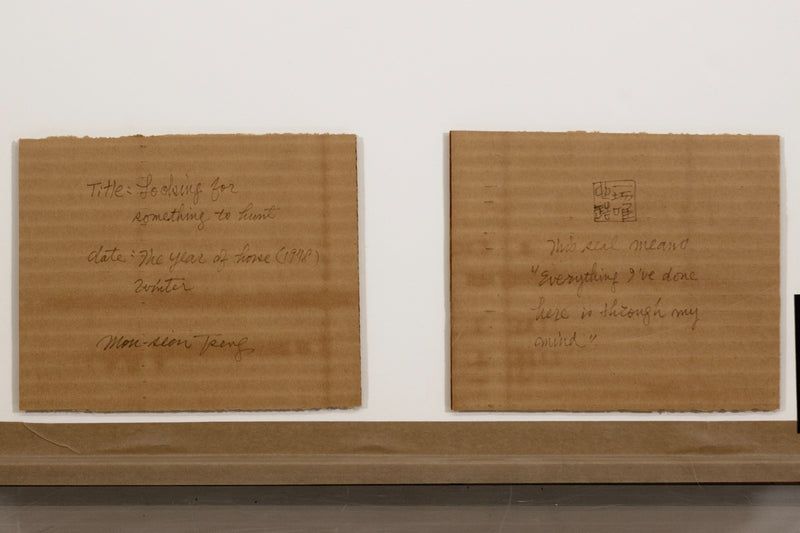 Title: Looking for
something to hunt
date: The year of horse (1978)
Winter
Mou-sien Tseng
This seal means
"Everything I've done
here is through my
mind"